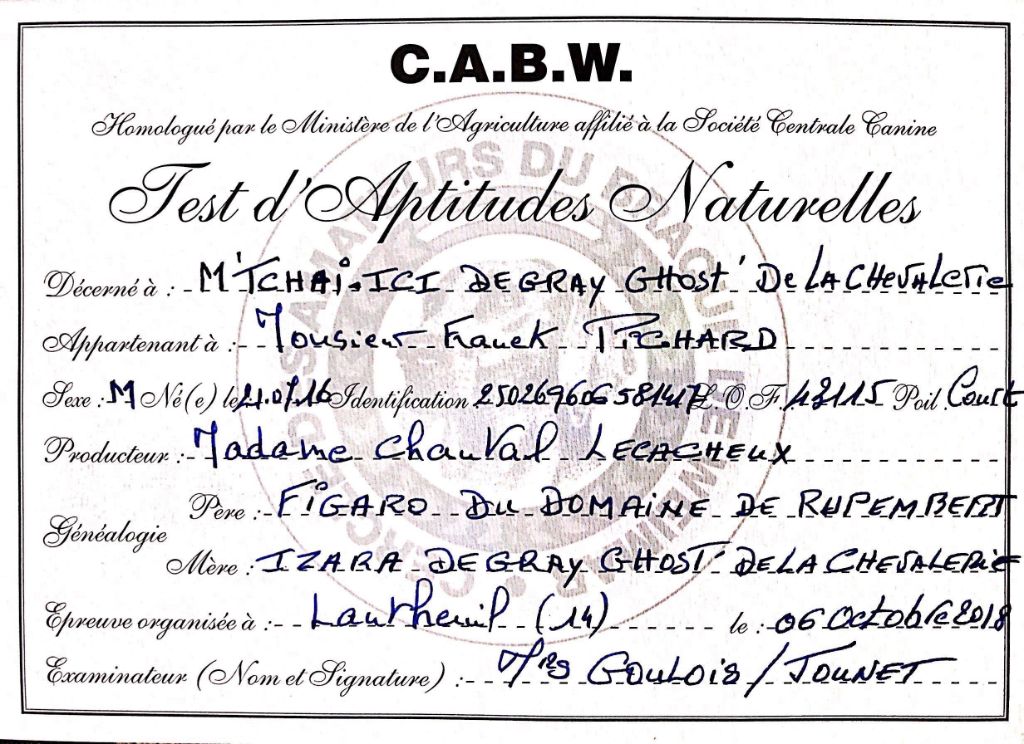 C.A.B.W.
Homologué par le Ministère de l'Agriculture affilié à la Société Centrale Canine
Test d'Aptitudes Naturelles
Décerné à : M'TCHAÏ-ICI DEGRAY GHOST' De LA CHEVALerie
Appartenant à : Monsieur Franck PICHARD
Sexe : M Né(e) le Identification L.O.F. Poil : Court
Producteur : Madame Chauval LECACHEUX
Généalogie
Père : FIGARO DU DOMAINE DE RUPEMBERT
Mère : IZARA DEGRAY GHOST' DE LA CHEVALERIE
Epreuve organisée à : (14) le : 06 Octobre 2018
Examinateur (Nom et Signature) : Mrs GOULOIS / JOUNET